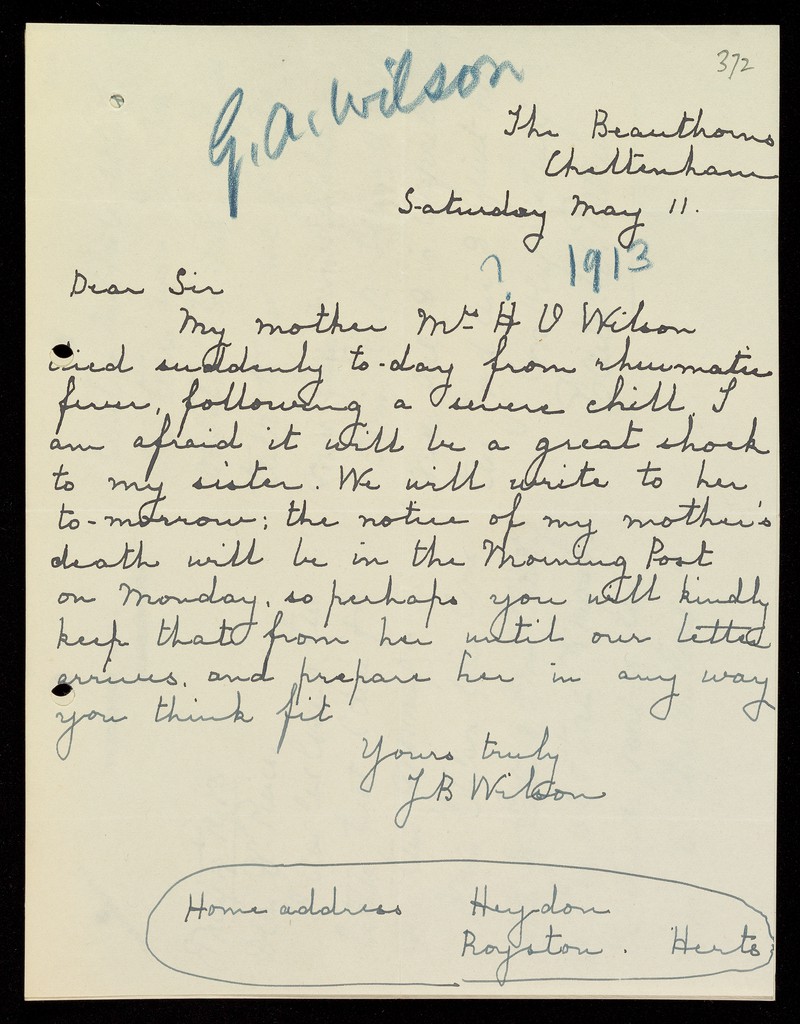 372
G. A. Wilson
The Beauthorns
Cheltenham
Saturday May 11.
? 1913
Dear Sir
My mother Mrs H V Wilson
died suddenly to-day from rheumatic
fever, following a severe chill. I
am afraid it will be a great shock
to my sister. We will write to her
to-morrow; the notice of my mother's
death will be in the Morning Post
on Monday, so perhaps you will kindly
keep that from her until our letter
arrives, and prepare her in any way
you think fit
Yours truly
B Wilson
Home address Heydon
Royston. Herts